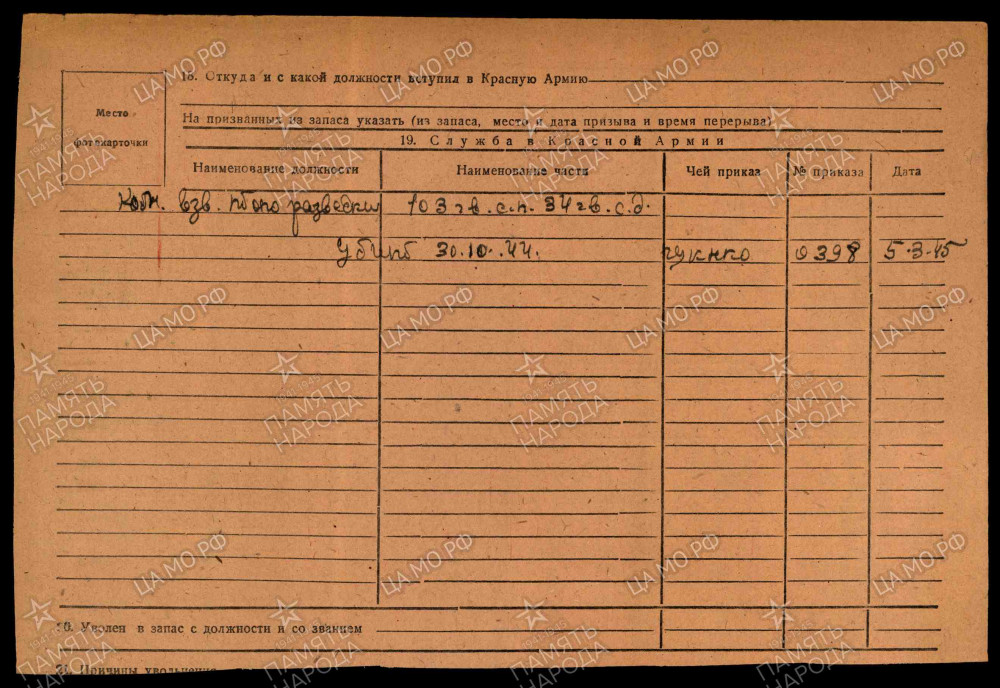 18. Откуда и с какой должности вступил в Красную Армию
Место фотокарточки
На призванных из запаса указать (из запаса, место и дата призыва и время перерыва)
19. Служба в Красной Армии
Наименование должности Наименование части Чей приказ № приказа Дата
Ком. взв. разведки 103 гв. с.п. 34 гв. с.д.
Убит 30.10.44. ГУКНКО 0398 5.3.45
20. Уволен в запас с должности и со званием
21. Причины увольнения
ЦАМО РФ
1941-1945
ПАМЯТЬ
НАРОДА